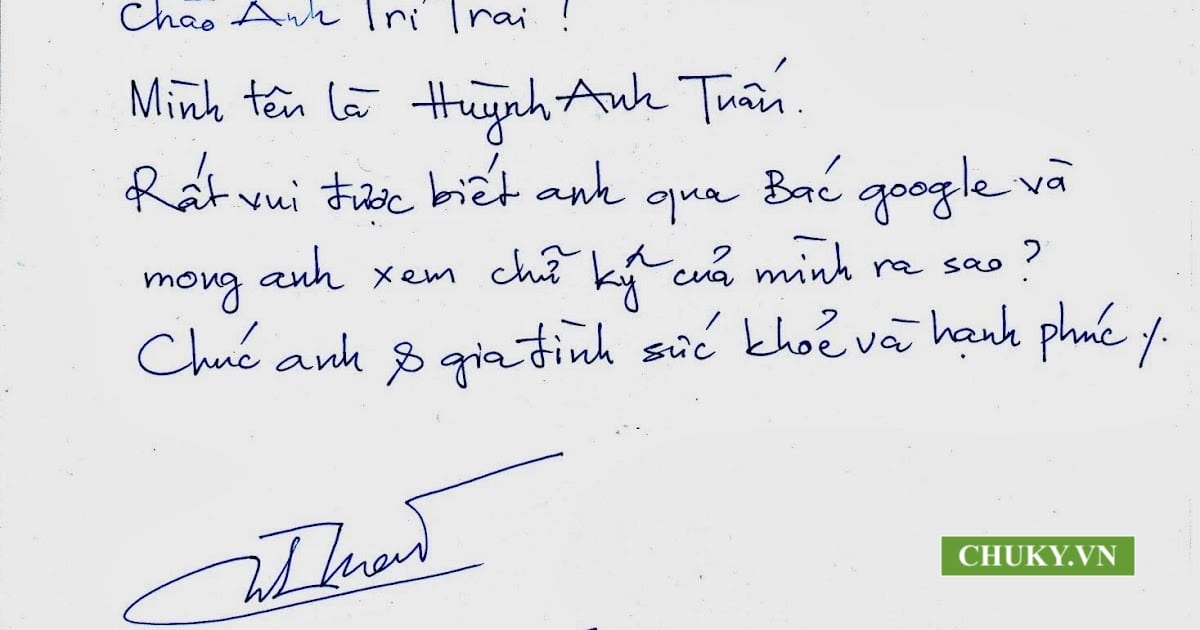 Chào Anh Trí Trai !
Mình tên là Huỳnh Anh Tuấn.
Rất vui được biết anh qua Bác google và
mong anh xem chữ ký của mình ra sao ?
Chúc anh & gia đình sức khoẻ và hạnh phúc ./.
CHUKY.VN